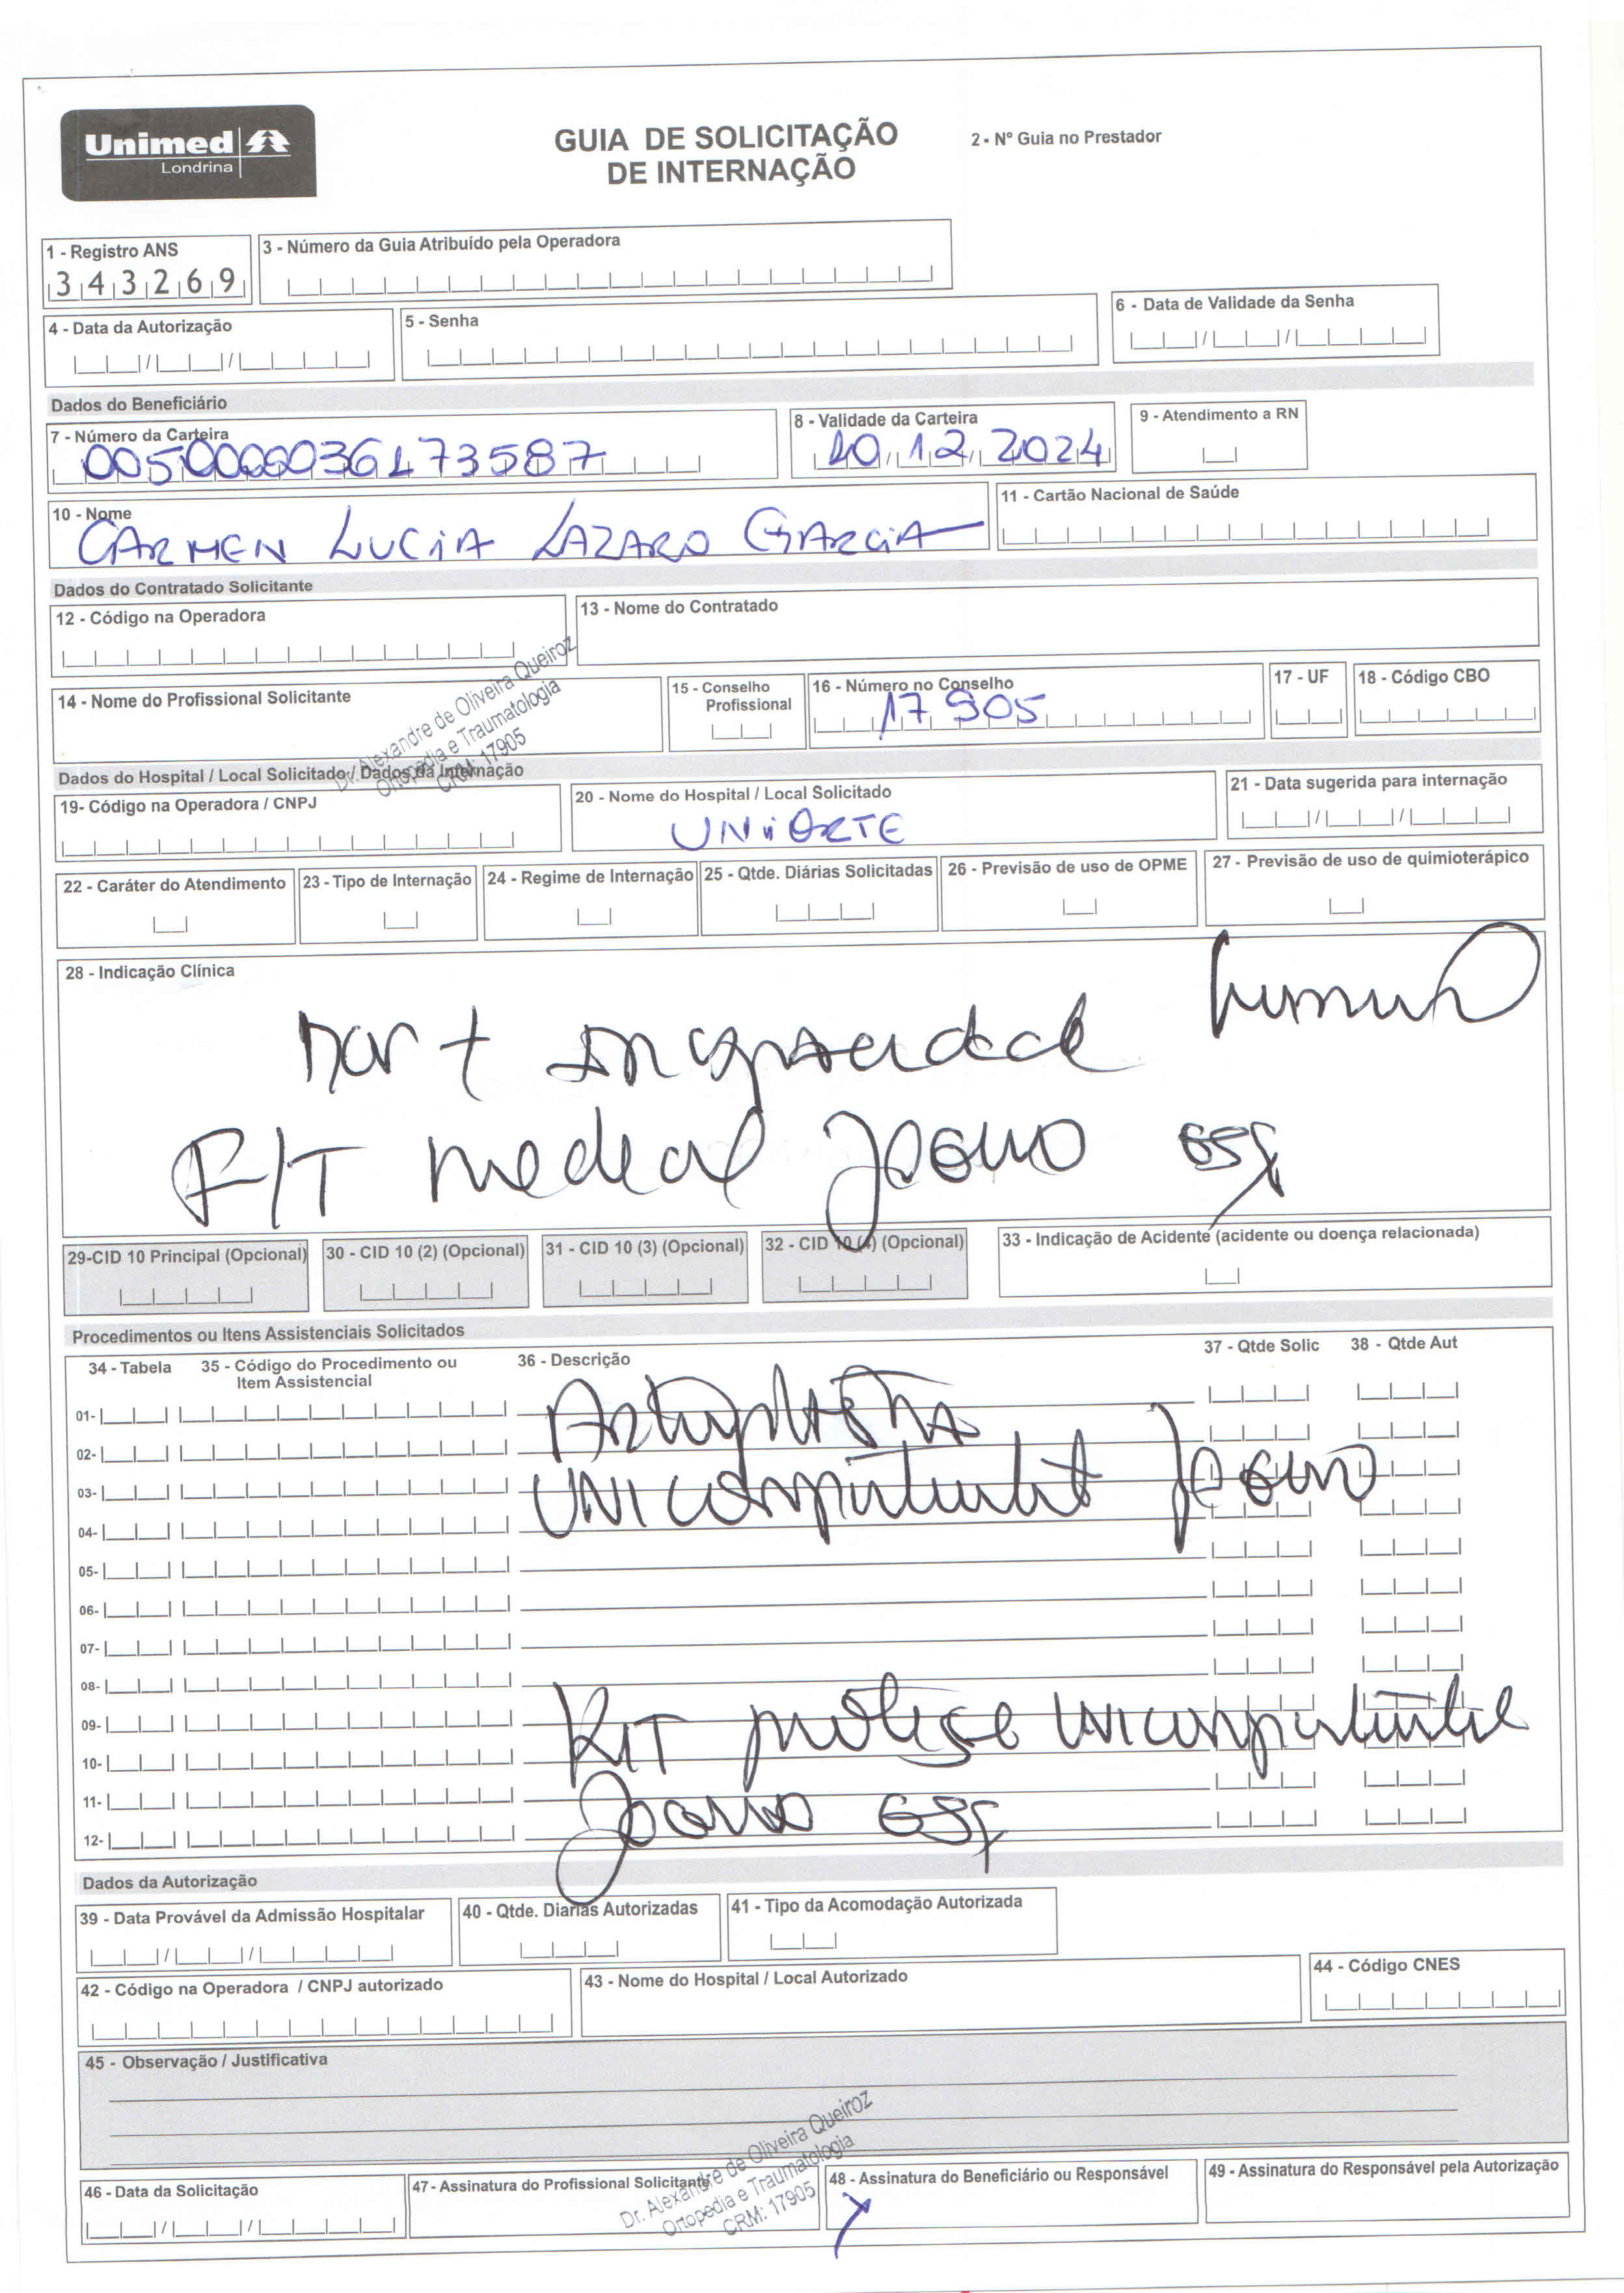 Unimed
Londrina
GUIA DE SOLICITAÇÃO
DE INTERNAÇÃO
2 - Nº Guia no Prestador
1 - Registro ANS
343269
3 - Número da Guia Atribuído pela Operadora
4 - Data da Autorização
5 - Senha
6 - Data de Validade da Senha
Dados do Beneficiário
7 - Número da Carteira
8 - Validade da Carteira
10.12.2024
9 - Atendimento a RN
10 - Nome
CARMEN LUCIA LAZARO GARCIA
11 - Cartão Nacional de Saúde
Dados do Contratado Solicitante
12 - Código na Operadora
13 - Nome do Contratado
14 - Nome do Profissional Solicitante
Dr. Alexandre de Oliveira Queiroz
Ortopedia e Traumatologia
CRM: 17905
15 - Conselho
Profissional
16 - Número no Conselho
17905
17 - UF
18 - Código CBO
Dados do Hospital / Local Solicitado / Dados da Internação
19- Código na Operadora / CNPJ
20 - Nome do Hospital / Local Solicitado
UNiORTE
21 - Data sugerida para internação
22 - Caráter do Atendimento
23 - Tipo de Internação
24 - Regime de Internação
25 - Qtde. Diárias Solicitadas
26 - Previsão de uso de OPME
27 - Previsão de uso de quimioterápico
28 - Indicação Clínica
F/T medial Joelho esq
29-CID 10 Principal (Opcional)
30 - CID 10 (2) (Opcional)
31 - CID 10 (3) (Opcional)
32 - CID 10 (4) (Opcional)
33 - Indicação de Acidente (acidente ou doença relacionada)
Procedimentos ou Itens Assistenciais Solicitados
34 - Tabela
35 - Código do Procedimento ou
Item Assistencial
36 - Descrição
37 - Qtde Solic
38 - Qtde Aut
01-
Artroplastia
02-
03-
Unicompartimental Joelho
04-
05-
06-
07-
08-
09-
Kit prótese unicompartimental
10-
11-
Joelho esq
12-
Dados da Autorização
39 - Data Provável da Admissão Hospitalar
40 - Qtde. Diarias Autorizadas
41 - Tipo da Acomodação Autorizada
42 - Código na Operadora / CNPJ autorizado
43 - Nome do Hospital / Local Autorizado
44 - Código CNES
45 - Observação / Justificativa
46 - Data da Solicitação
47- Assinatura do Profissional Solicitante
Dr. Alexandre de Oliveira Queiroz
Ortopedia e Traumatologia
CRM: 17905
48 - Assinatura do Beneficiário ou Responsável
49 - Assinatura do Responsável pela Autorização